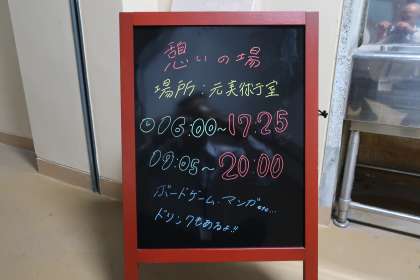 憩いの場
場所：元美術室
16:00~17:25
19:05~20:00
ボードゲーム・マンガetc...
ドリンクもあるよ!!